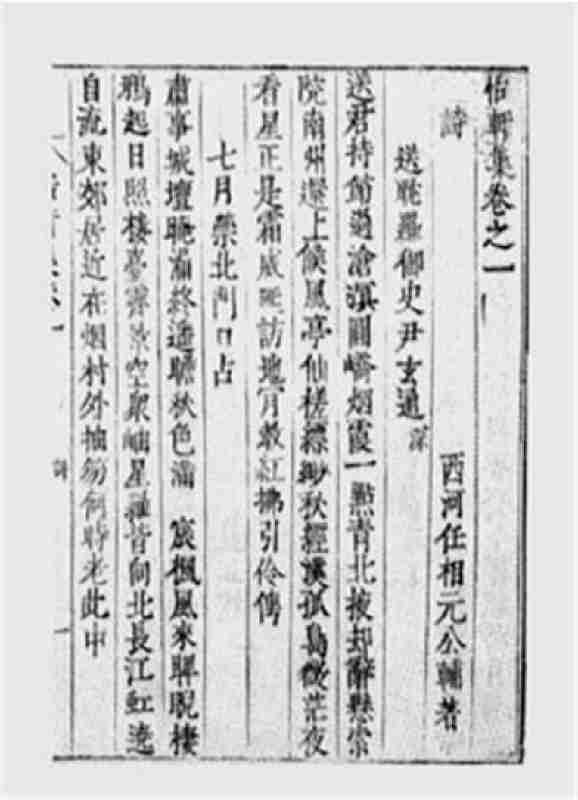 恬軒集卷之一
詩 西河任相元公輔著
送耽羅御史尹玄通 深
送君持節過滄溟圓嶠烟霞一點青北掖却辭懸索
院南州還上候風亭仙槎縹緲秋經漢孤島微茫夜
看星正是霜威訪地肯教紅拂引伶俜
七月禜北門口占
肅事城壇曉漏終遙瞻秋色滿 宸楓風來睥睨棲
鴉起日照樓臺霽景空衆岫星羅皆向北長江虹遶
自流東郊居近在烟村外抽笏何時老此中
詩 一